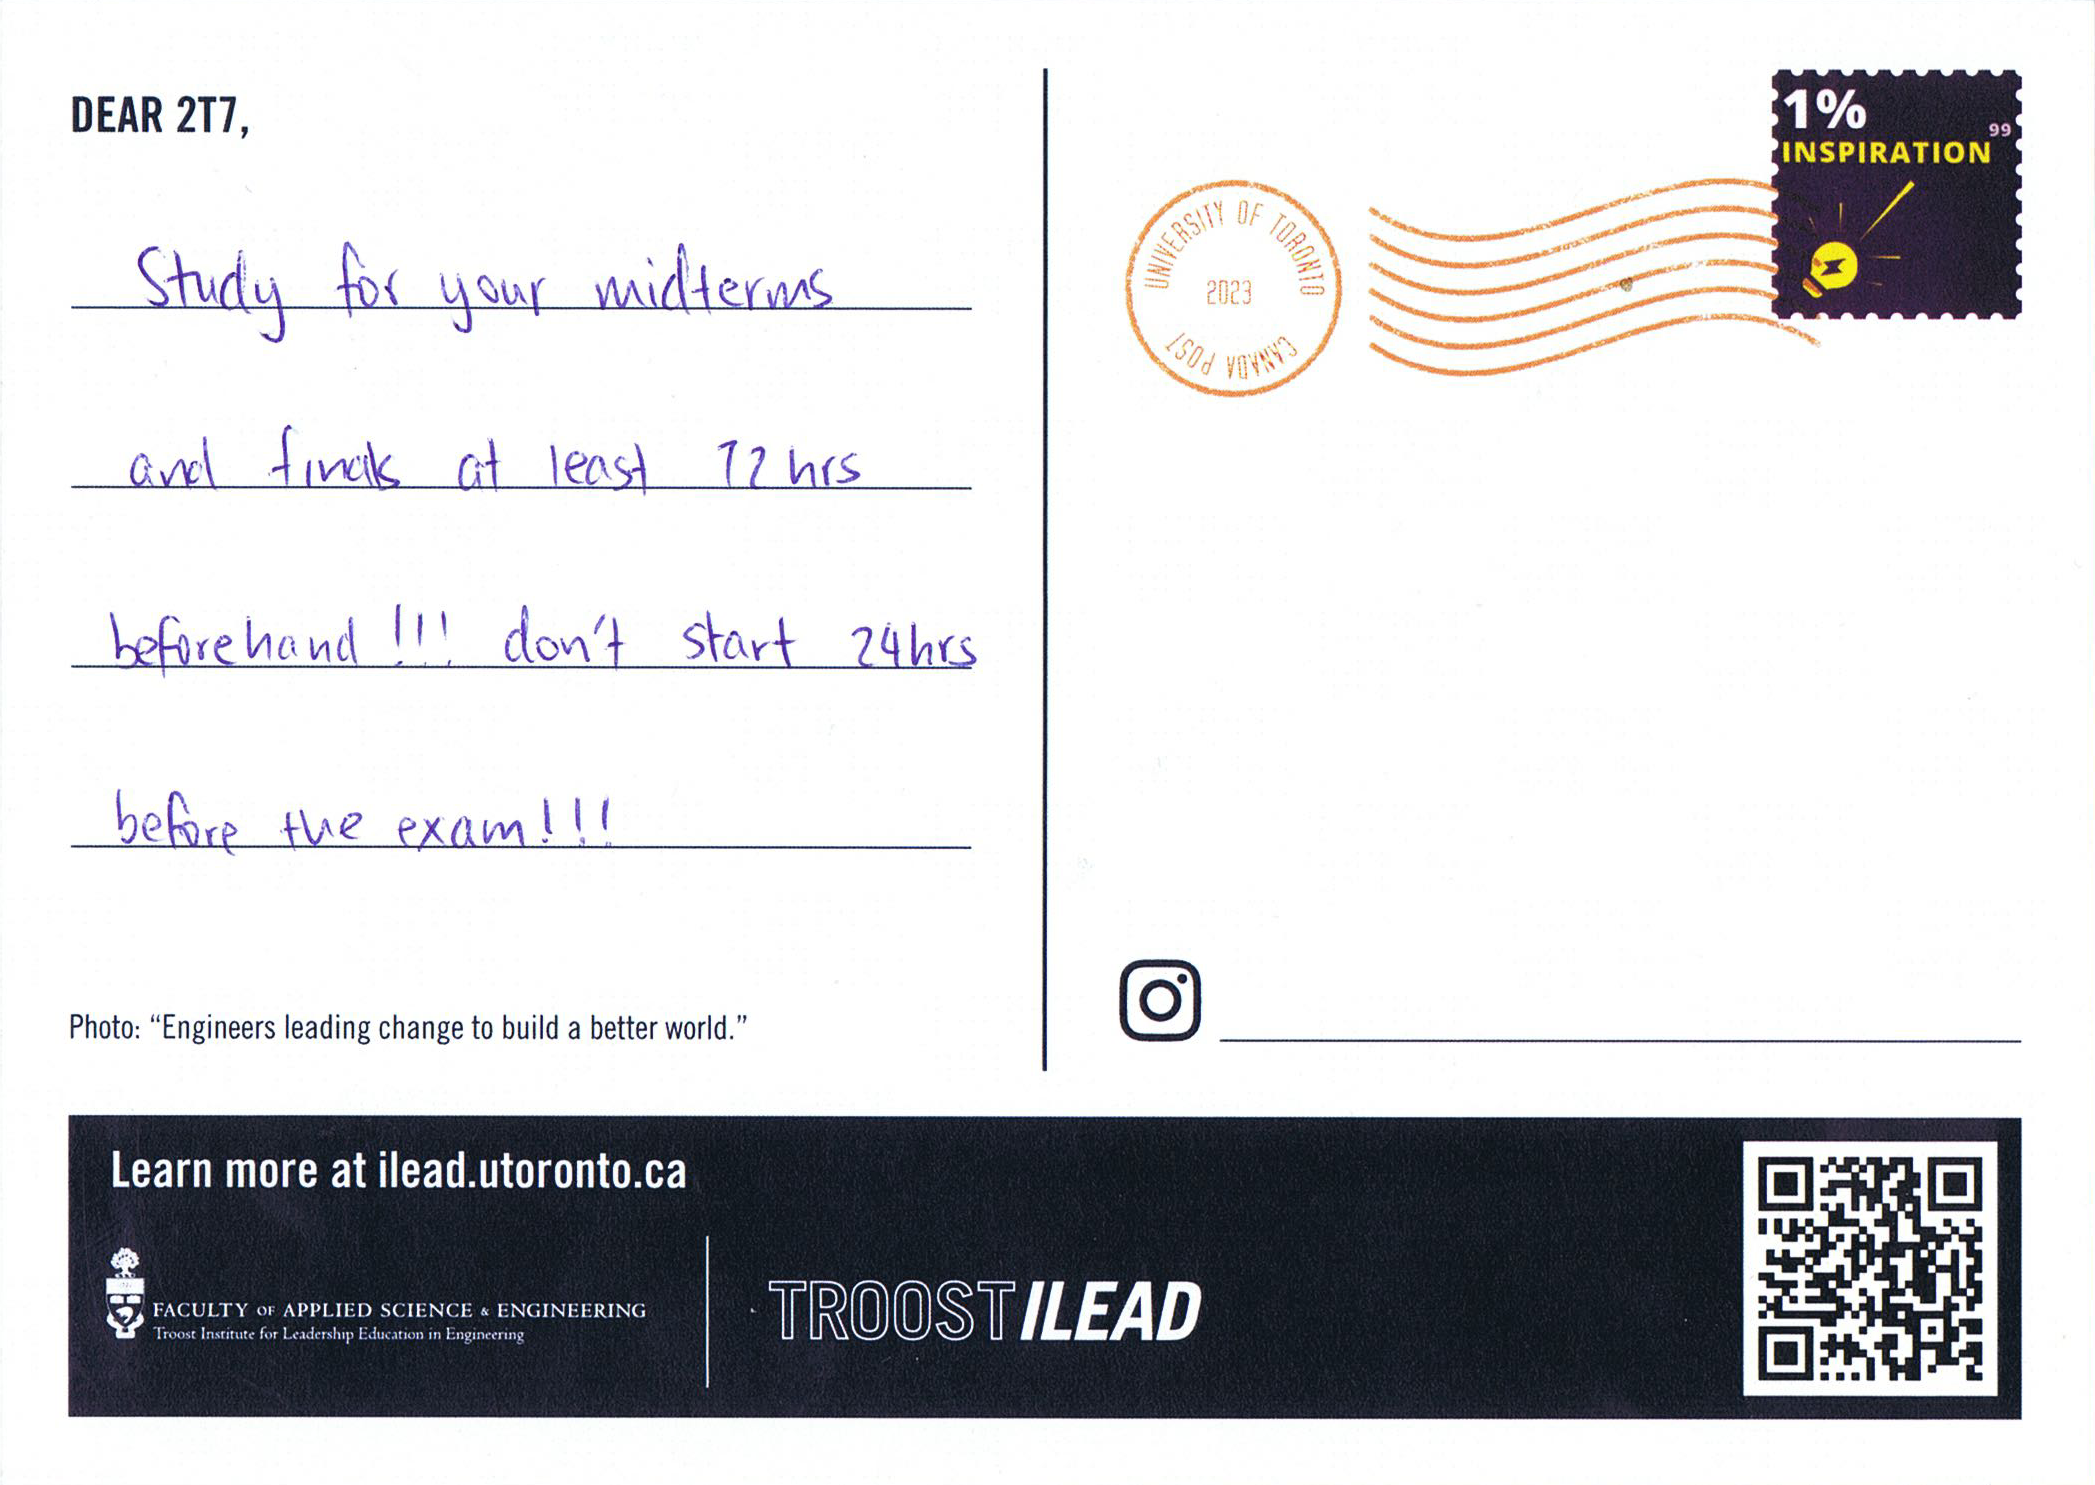 DEAR 2T7,
Study for your midterms
and finals at least 72 hrs
beforehand!!! don't start 24hrs
before the exam!!!
Photo: “Engineers leading change to build a better world.”
1%
99
INSPIRATION
UNIVERSITY OF TORONTO
2023
CANADA POST
Learn more at ilead.utoronto.ca
FACULTY OF APPLIED SCIENCE & ENGINEERING
Troost Institute for Leadership Education in Engineering
TROOST ILEAD